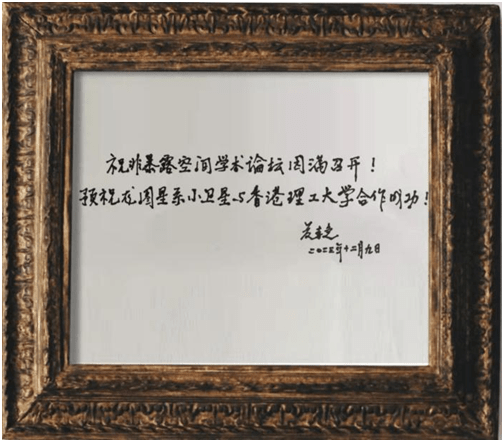 祝非暴露空间学术论坛圆满召开！
预祝龙图星系小卫星与香港理工大学合作成功！
二〇二三年十二月九日